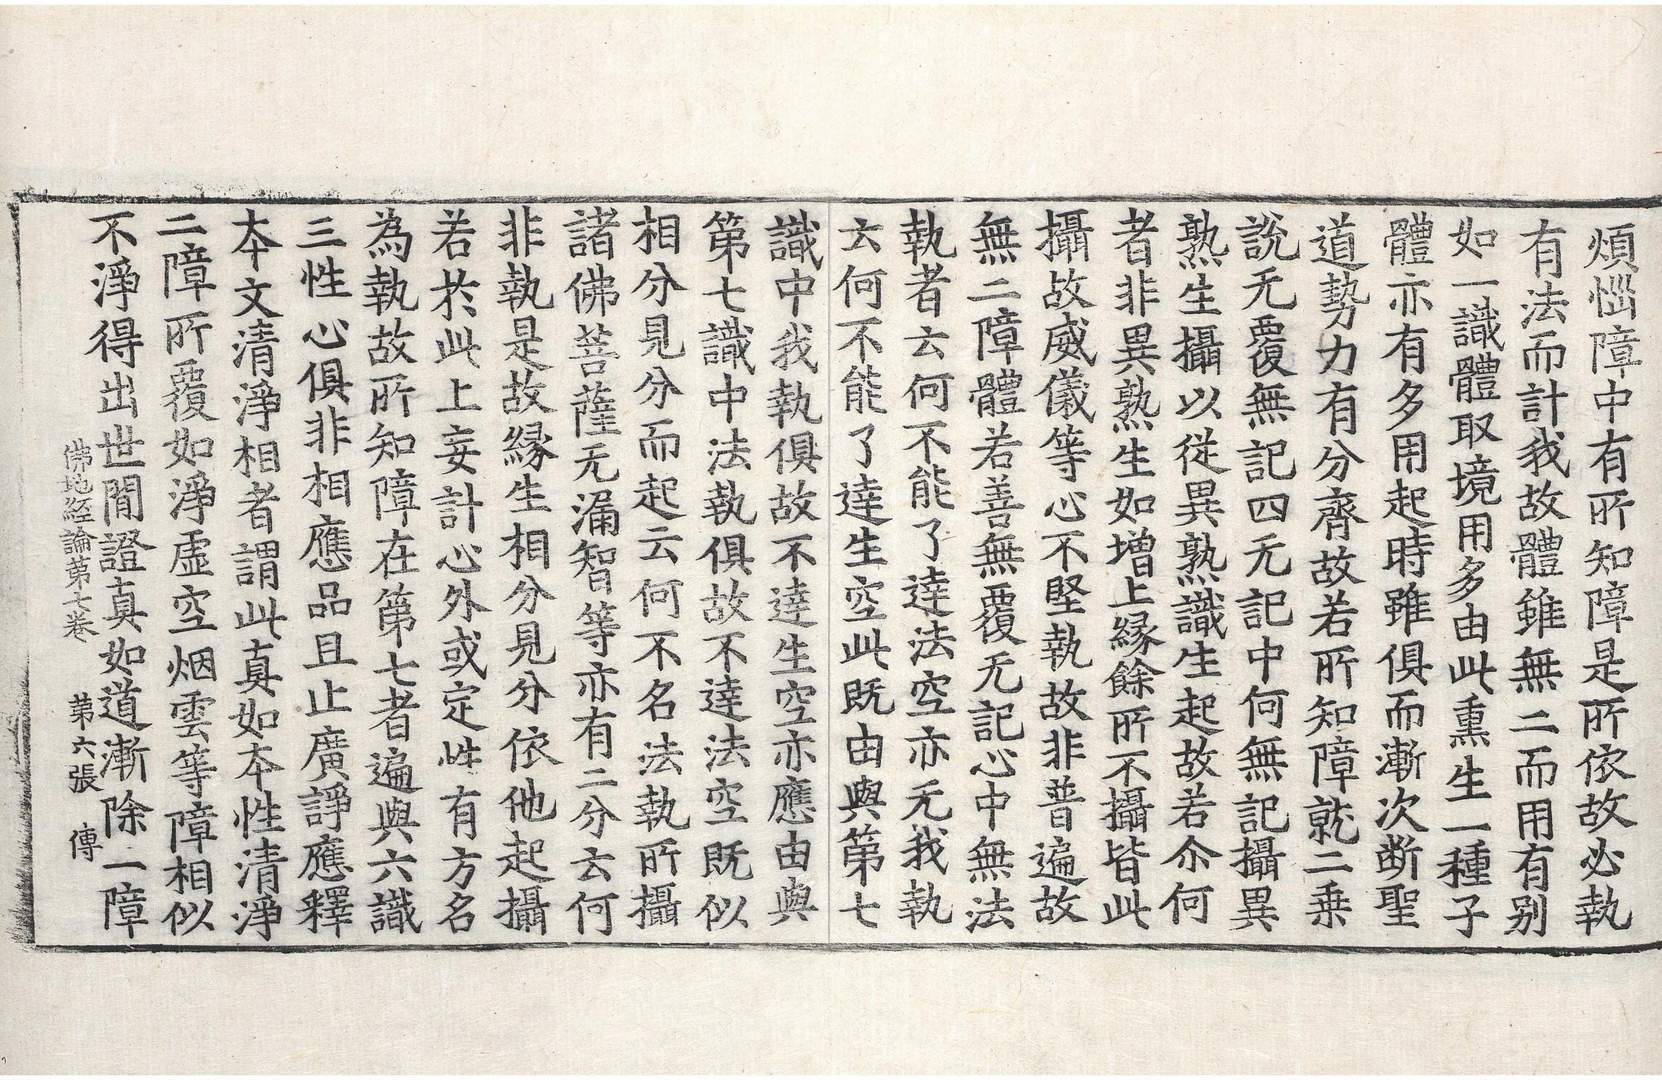 煩惱障中有所知障是所依故必執
有法而計我故體雖無二而用有別
如一識體取境用多由此熏生一種子
體亦有多用起時雖俱而漸次断聖
道勢力有分齊故若所知障就二乗
說无覆無記四无記中何無記攝異
熟生攝以從異熟識生起故若尒何
者非異熟生如增上緣餘所不攝皆此
攝故威儀等心不堅執故非普遍故
無二障體若善無覆无記心中無法
執者云何不能了達法空亦无我執
云何不能了達生空此既由與第七
識中我執俱故不達生空亦應由與
第七識中法執俱故不達法空既似
相分見分而起云何不名法執所攝
諸佛菩薩无漏智等亦有二分云何
非執是故緣生相分見分依他起攝
若於此上妄計心外或定性有方名
為執故所知障在第七者遍與六識
三性心俱非相應品且止廣諍應釋
本文清淨相者謂此真如本性清淨
二障所覆如淨虛空烟雲等障相似
不淨得出世閒證真如道漸除一障
佛地經論第七卷　第六張　傳